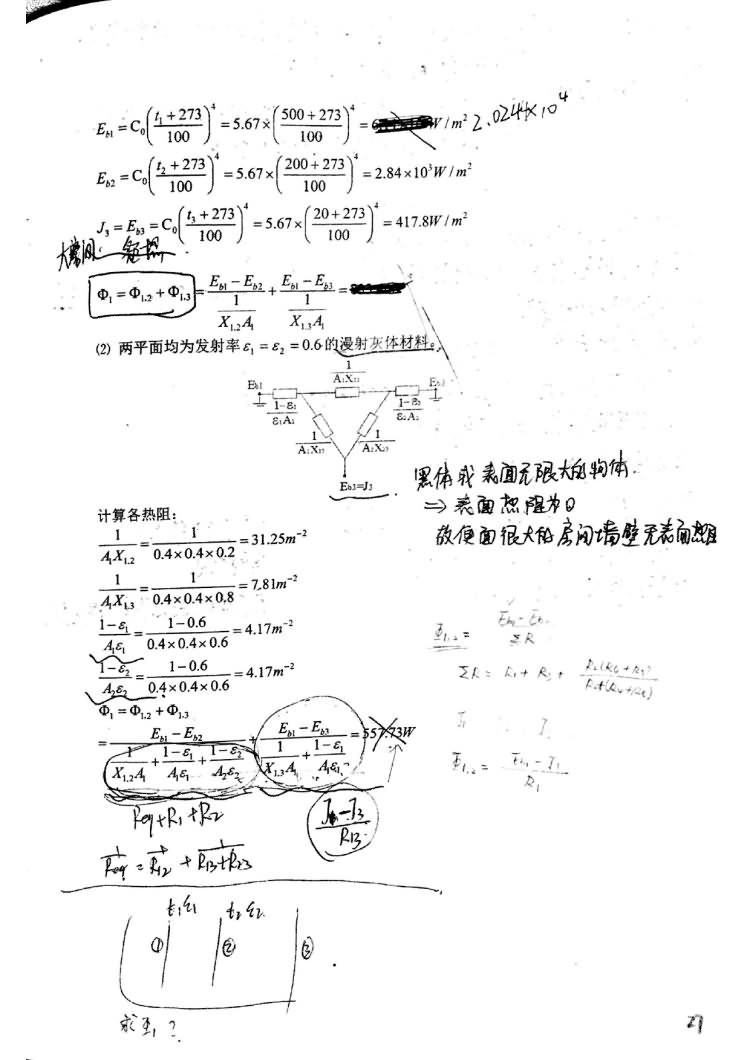 E_{b1} = C₀((t₁+273)/100)⁴ = 5.67×((500+273)/100)⁴ = W/m² 2.0244×10⁴
E_{b2} = C₀((t₂+273)/100)⁴ = 5.67×((200+273)/100)⁴ = 2.84×10³W/m²
J₃ = E_{b3} = C₀((t₃+273)/100)⁴ = 5.67×((20+273)/100)⁴ = 417.8W/m²
Φ₁ = Φ_{1,2} + Φ_{1,3} = (E_{b1}−E_{b2})/(1/(X_{1,2}A₁)) + (E_{b1}−E_{b3})/(1/(X_{1,3}A₁)) =
⑵ 两平面均为发射率ε₁ = ε₂ = 0.6的漫射灰体材料。
1/(A₁X₁₂)
E_{b1}
(1-ε₁)/(ε₁A₁) (1-ε₂)/(ε₂A₂)
1/(A₁X₁₃) 1/(A₂X₂₃)
E_{b3}=J₃
黑体或表面无限大的物体.
⇒ 表面热阻为0
故使面很大的房间墙壁无表面热阻
计算各热阻:
1/(A₁X_{1,2}) = 1/(0.4×0.4×0.2) = 31.25m⁻²
1/(A₁X_{1,3}) = 1/(0.4×0.4×0.8) = 7.81m⁻²
(1−ε₁)/(A₁ε₁) = (1−0.6)/(0.4×0.4×0.6) = 4.17m⁻²
(1−ε₂)/(A₂ε₂) = (1−0.6)/(0.4×0.4×0.6) = 4.17m⁻²
Φ₁ = Φ_{1,2} + Φ_{1,3}
= (E_{b1}−E_{b2})/(1/(X_{1,2}A₁) + (1−ε₁)/(A₁ε₁) + (1−ε₂)/(A₂ε₂)) + (E_{b1}−E_{b3})/(1/(X_{1,3}A₁) + (1−ε₁)/(A₁ε₁)) = 557.73W
Φ_{1,2} = /ΣR
ΣR = R₁ +
Φ_{1,2} = /R₁
Req+R₁+R₂
(J₁−J₃)/R₁₃
1/Req = 1/R₁₂ + 1/(R₁₃+R₂₃)
t₁ε₁ t₂ε₂
① ② ③
求Φ₁?
27